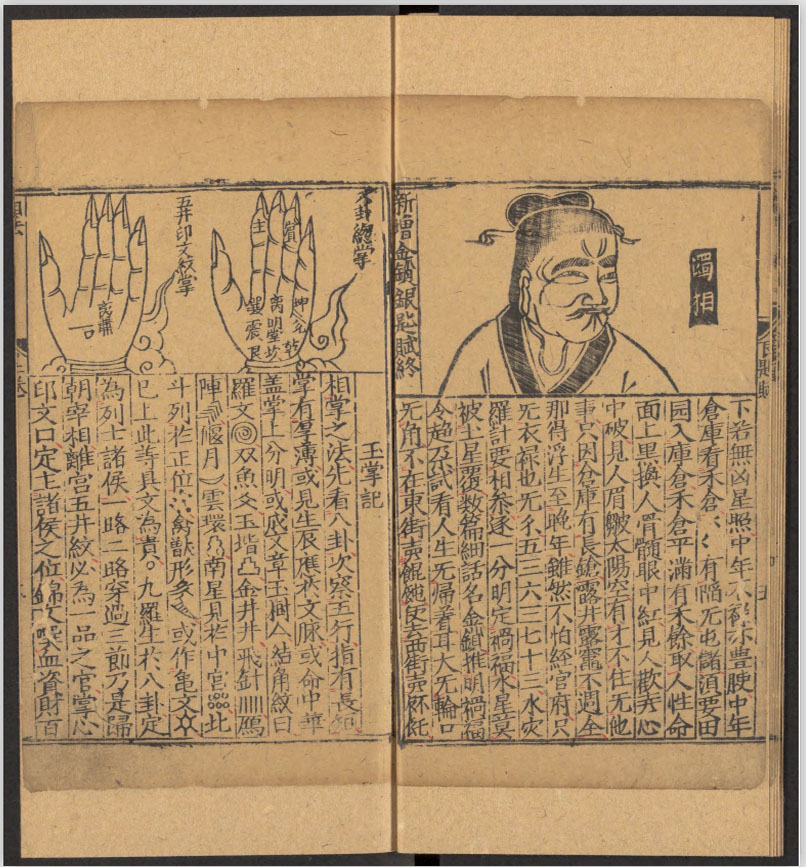 濁相
下若無凶星照中年不祿亦豊腴中年
倉庫看禾倉
有陷无也諸須要田
园入庫倉禾倉平滿有禾餘取人性命
面上里換人骨髓眼中紅見人歡喜心
中破見人眉皺太陽空有才不住无他
事只因倉庫有長鎗露井露竈不週全
那得浮生至晚年雖然不怕經官府只
旡衣祿也旡禾五三六三七十三水灾
羅計要相叅逐一分明定禍福水星莫
被土星覆数篇細話名金鎖推明禍福
令趂
試看人生旡歸着耳大无輪口
旡角不在東街賣餛飩便去西街賣
新增金鎖銀匙賦終
八卦總掌
主
賓
坤
兌
乾
离明堂坎
巽震艮
五井印文紋掌
离
玉掌記
相掌之法先看八卦次察五行指有長短
掌有厚薄或見生辰應於文脉或命中華
盖掌上分明或成文章玉
結角紋曰
羅文
双魚
玉堦
金井井飛針
鴈
陣
偃月
雲環
南星見於中宫
北
斗列於正位
禽獸形
或作亀文
巳上此等具文為貴。九羅生於八卦定
為列士諸侯一略一略穿過三前乃是歸
朝宰相離宫五井紋必為一品之官掌心
印文口定主諸侯之位錦文
資財百